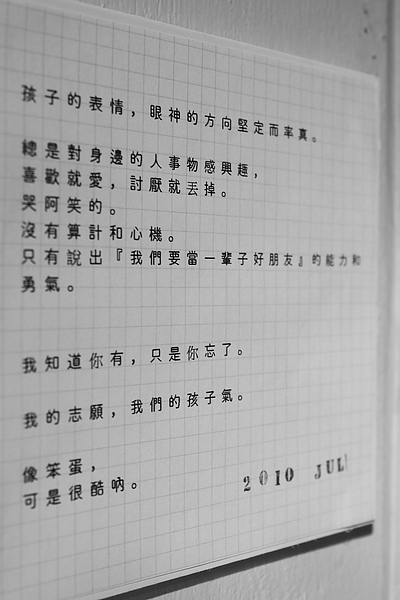 孩子的表情，眼神的方向堅定而率真。
總是對身邊的人事物感興趣，
喜歡就愛，討厭就丟掉。
哭阿笑的。
沒有算計和心機。
只有說出『我們要當一輩子好朋友』的能力和
勇氣。
我知道你有，只是你忘了。
我的志願，我們的孩子氣。
像笨蛋，
可是很酷吶。
2010 JUL